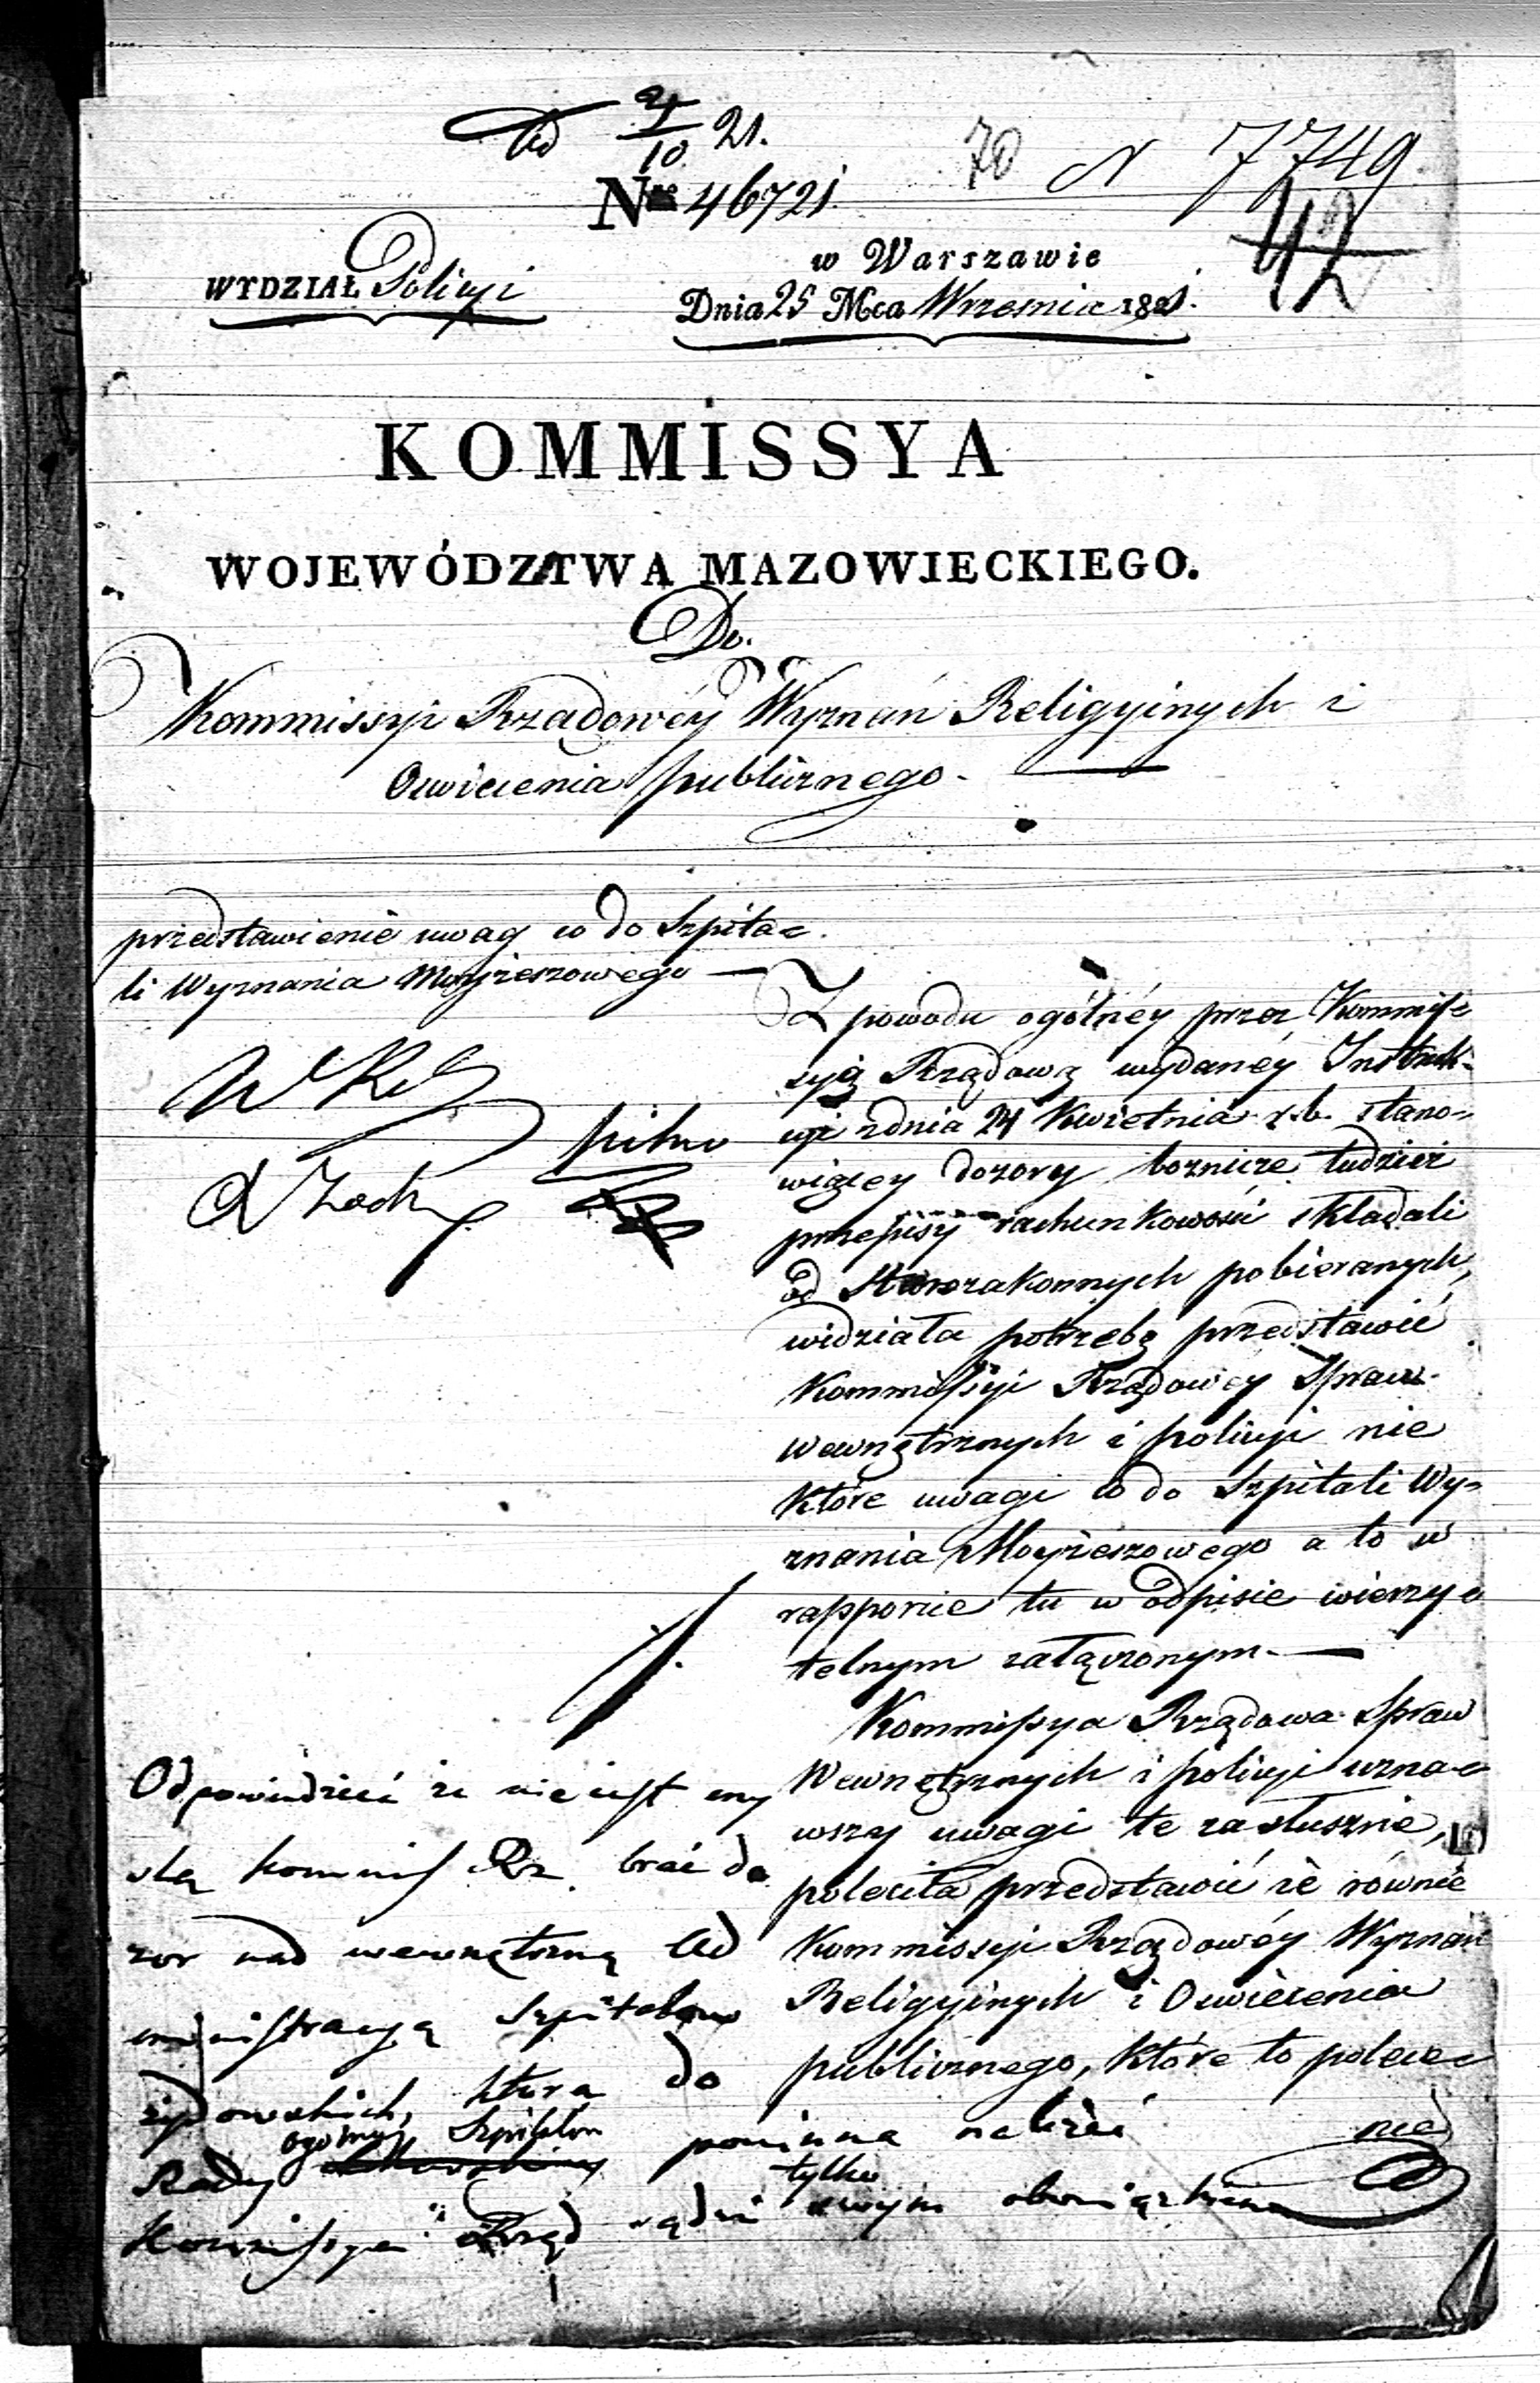 Ad 2/10 21.
70 N 7749
Nro 46721.
42
w Warszawie
WYDZIAŁ Policyi
Dnia 25 Mca Wrzesnia 1821.
KOMMISSYA
WOJEWÓDZTWA MAZOWIECKIEGO.
Do.
Kommissyi Rządowéy Wyznań Religyinych i
Oświecenia publicznego.
przedstawienie uwag co do Szpita-
li Wyznania Moyżeszowego
pilno
Z powodu ogólnéy przez Kommis-
syią Rządową wydanéy Instruk-
cyi zdnia 24 Kwietnia r.b. stano-
wiącey dozory boznicze tudzież
przepisy rachunkowości składali
od Starozakonnych pobieranych,
widziała potrzebę przedstawić
Kommissyi Rządowéy Spraw
Wewnętrznych i policyi nie
które uwagi co do Szpitali Wy-
znania Moyżeszowego a to w
rapporcie tu w odpisie wierzy-
telnym załączonym.
Kommissya Rządowa Spraw
Wewnętrznych i policyi uzna-
wszy uwagi te za słuszne,
poleciła przedstawić że równie
Kommissyi Rządowéy Wyznań
Religyinych i Oświecenia
publicznego, które to polece-
nie
Odpowiedzieć że nie iest my
slą kommiss Rz. brać do
zor nad wewnętrzną Ad
ministracyą Szpitalow
żydowskich, która do
Rady ogolney Szpitalow powinna należeć
Kommissya Rząd sądzi tylko swym obowiązkiem